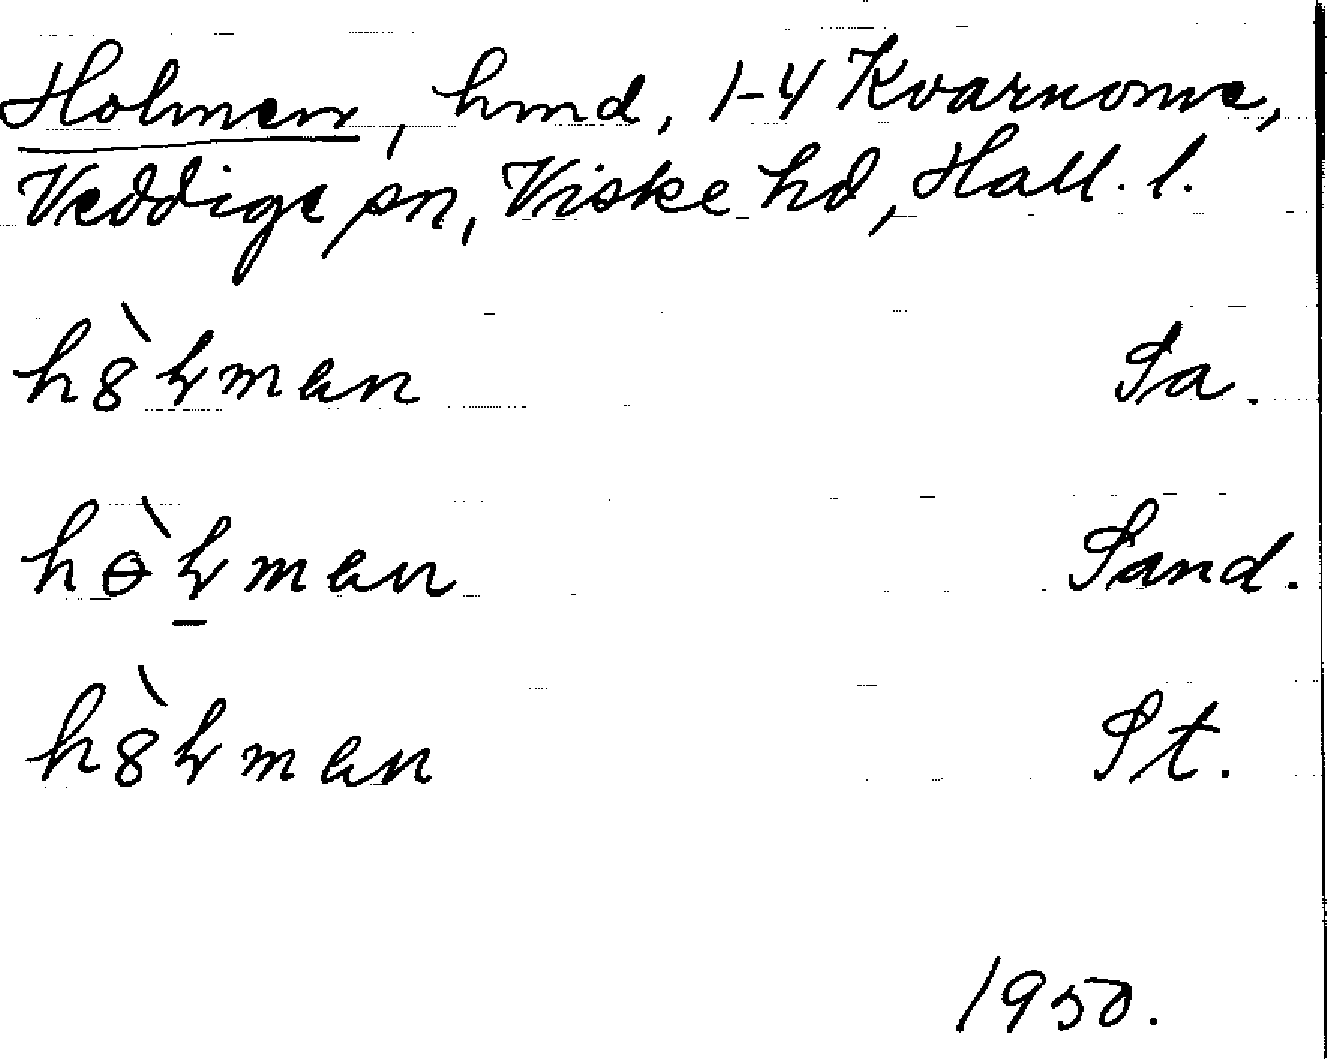 Holmen, hmd, 1-4 Kvarnome,
Veddige sn, Viske hd, Hall. l.
hȣ̀ɬman Sa.
hɵ̀ɬ̲man Sand.
hȣ̀ɬman St.
1950.